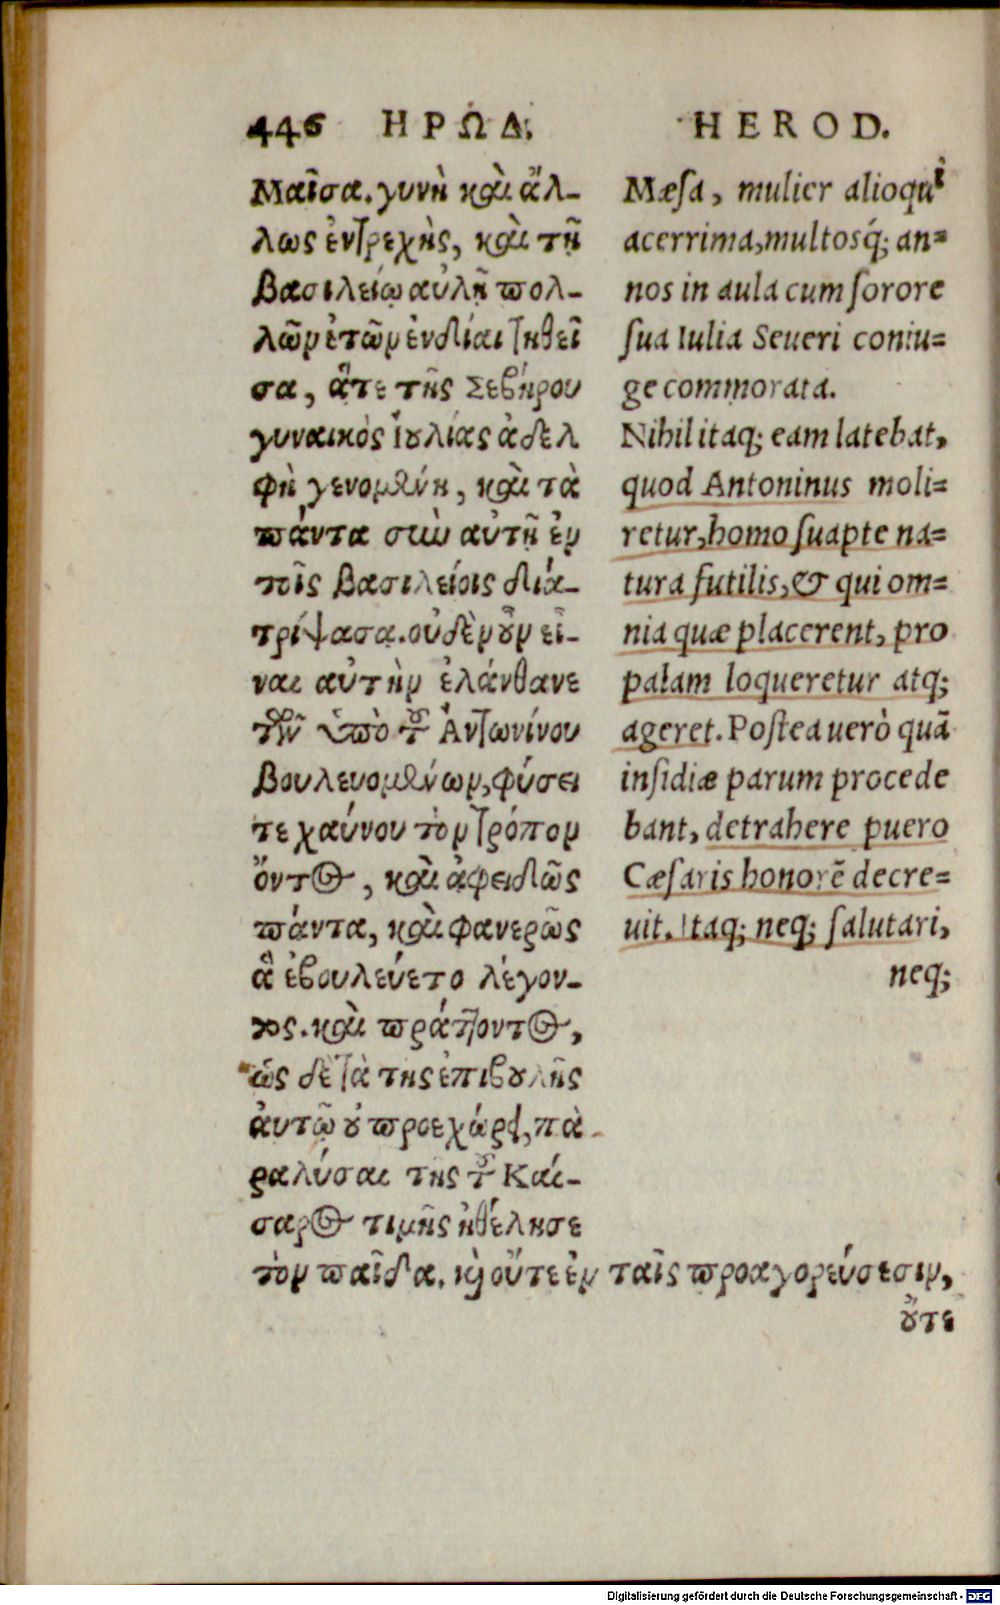 446 ΗΡΩΔ.
Μαῖσα. γυνὴ καὶ ἄλ-
λως ἐντρεχὴς, καὶ τῇ
βασιλείῳ αὐλῇ πολ-
λῶν ἐτῶν ἐνδιαιτηθεῖ
σα, ἅτε τῆς Σεβήρου
γυναικὸς Ἰουλίας ἀδελ
φὴ γενομένη, καὶ τὰ
πάντα σὺν αὐτῇ ἐν
τοῖς βασιλείοις δια-
τρίψασα. οὐδὲν οὖν εἶ-
ναι αὐτὴν ἐλάνθανε
τῶν ὑπὸ τοῦ Ἀντωνίνου
βουλευομένων, φύσει
τε χαύνου τὸν τρόπον
ὄντος, καὶ ἀφειδῶς
πάντα, καὶ φανερῶς
ἃ ἐβουλεύετο λέγον-
τος. καὶ πράττοντος,
ὡς δὲ τὰ της ἐπιβουλῆς
ἀυτῷ οὐ προεχώρει, πὰ-
ραλύσαι της τοῦ Καί-
σαρος τιμῆς ἠθέλησε
τὸν παῖδα. καὶ οὔτε ἐν ταῖς προαγορεύσεσιν,
οὔτε
HEROD.
Mæſa, mulier alioquí
acerrima, multosq́; an=
nos in aula cum ſorore
ſua Iulia Seueri coniu=
ge commorata.
Nihil itaq; eam latebat,
quod Antoninus moli=
retur, homo ſuapte na=
tura futilis, & qui om=
nia quæ placerent, pro
palam loqueretur atq;
ageret. Poſtea uerò quã
inſidiæ parum procede
bant, detrahere puero
Cæſaris honorẽ decre=
uit. Itaq; neq; ſalutari,
neq;
Digitalisierung gefördert durch die Deutsche Forschungsgemeinschaft - DFG